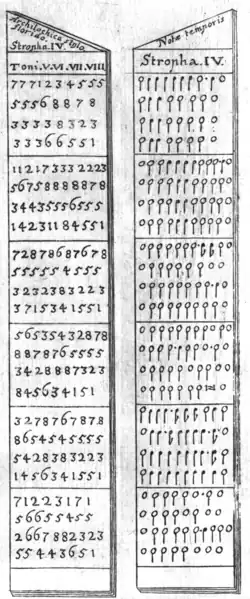 Archilochica Stylo
florido.
Stropha. IV.
Toni. V. VI. VII. VIII
7 7 7 1 2 3 4 5 5 5
5 5 5 6 8 8 7 8
3 3 3 3 8 3 2 3
3 3 3 6 6 5 5 1
1 1 2 1 7 3 3 3 2 2 2 3
5 6 7 5 8 8 8 8 8 7 8
3 4 4 3 5 5 5 6 5 5 5
1 4 2 3 1 1 8 4 5 5 1
7 2 8 7 8 6 8 7 6 7 8
5 5 5 5 5 4 5 5 5
3 2 3 2 3 8 3 2 2 3
3 7 1 5 3 4 1 5 5 1
5 6 5 3 5 4 3 2 8 7 8
8 8 7 8 7 6 5 5 5 5
3 4 2 8 8 8 7 3 2 3
8 4 5 6 3 4 1 5 1
3 2 7 8 7 6 7 8 7 8
8 6 5 4 5 4 5 5 5 5
5 4 2 8 3 8 3 2 2 3
1 4 5 6 3 4 1 5 5 1
7 1 2 2 3 1 7 1
5 6 6 5 5 4 5 5
2 6 6 7 8 8 2 3 2 3
5 5 4 4 3 6 5 1
Notæ temporis
Stropha. IV.